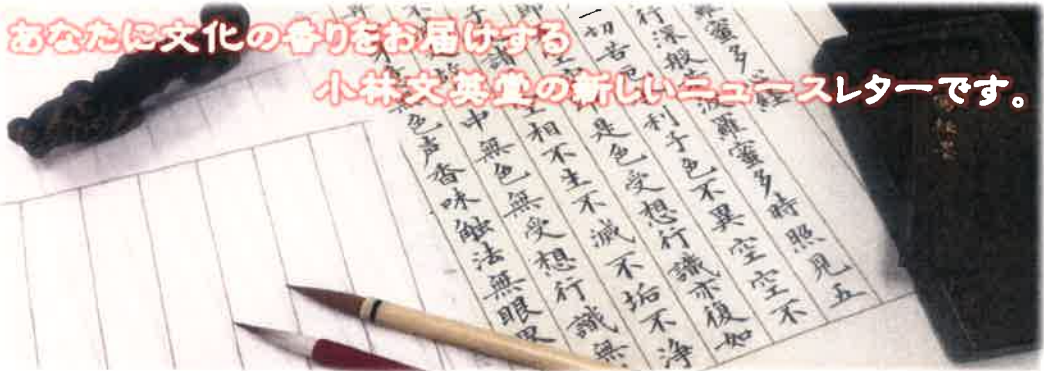 あなたに文化の香りをお届けする
小林文英堂の新しいニュースレターです。
羅蜜多心経
行深般波羅蜜多時照見五
一切苦厄利子色不異空空不
即是色受想行識亦復如
子諸空相不生不滅不垢不浄
不中無色無受想行識無
色声香味触法無眼界